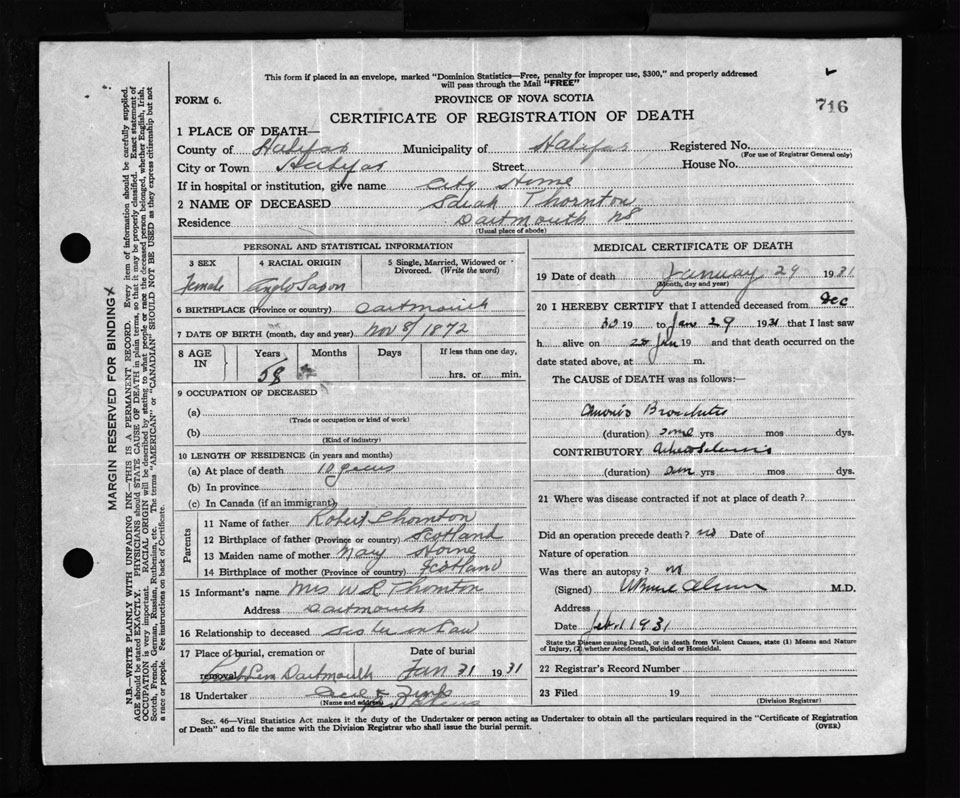 This form if placed in an envelope, marked "Dominion Statistics—Free, penalty for improper use, $300," and properly addressed
will pass through the Mail "FREE"
716
FORM 6.
PROVINCE OF NOVA SCOTIA
CERTIFICATE OF REGISTRATION OF DEATH
1 PLACE OF DEATH—
County of Halifax Municipality of Halifax Registered No.
(For use of Registrar General only)
City or Town Halifax Street House No.
If in hospital or institution, give name City Home
2 NAME OF DECEASED Thornton
Residence Dartmouth NS
(Usual place of abode)
PERSONAL AND STATISTICAL INFORMATION
3 SEX 4 RACIAL ORIGIN 5 Single, Married, Widowed or Divorced. (Write the word)
Female Anglo Saxon
6 BIRTHPLACE (Province or country) Dartmouth
7 DATE OF BIRTH (month, day and year) Nov 8/1872
8 AGE IN Years Months Days If less than one day,
58 hrs. or min.
9 OCCUPATION OF DECEASED
(a)
(Trade or occupation or kind of work)
(b)
(Kind of industry)
10 LENGTH OF RESIDENCE (in years and months)
(a) At place of death 10 years
(b) In province
(c) In Canada (if an immigrant)
Parents
11 Name of father Robert Thornton
12 Birthplace of father (Province or country) Scotland
13 Maiden name of mother Mary Horne
14 Birthplace of mother (Province or country) Scotland
15 Informant's name Mrs W R Thornton
Address Dartmouth
16 Relationship to deceased Sister in Law
17 Place of burial, cremation or removal Date of burial
Dartmouth Jan 31 1931
18 Undertaker
(Name and address)
MEDICAL CERTIFICATE OF DEATH
19 Date of death January 29 1931
(Month, day and year)
20 I HEREBY CERTIFY that I attended deceased from Dec
30 19 to Jan 29 1931 that I last saw
h alive on Jan 19 and that death occurred on the
date stated above, at m.
The CAUSE of DEATH was as follows:—
Chronic Bronchitis
(duration) some yrs mos dys.
CONTRIBUTORY
(duration) yrs mos dys.
21 Where was disease contracted if not at place of death?
Did an operation precede death? no Date of
Nature of operation
Was there an autopsy? no
(Signed) M.D.
Address
Date Feb 1 1931
State the Disease causing Death, or in death from Violent Causes, state (1) Means and Nature
of Injury, (2) whether Accidental, Suicidal or Homicidal.
22 Registrar's Record Number
23 Filed 19
(Division Registrar)
Sec. 46—Vital Statistics Act makes it the duty of the Undertaker or person acting as Undertaker to obtain all the particulars required in the "Certificate of Registration
of Death" and to file the same with the Division Registrar who shall issue the burial permit. (OVER)
MARGIN RESERVED FOR BINDING
N.B.—WRITE PLAINLY WITH UNFADING INK—THIS IS A PERMANENT RECORD. Every item of information should be carefully supplied.
AGE should be stated EXACTLY. PHYSICIANS should STATE CAUSE OF DEATH in plain terms, so that it may be properly classified. Exact statement of
OCCUPATION is very important. RACIAL ORIGIN will be described by stating to what people or race the deceased person belonged, whether English, Irish,
Scotch, French, German, Russian, Ruthenian, etc. The terms "AMERICAN" or "CANADIAN" SHOULD NOT BE USED as they express citizenship but not
a race or people. See instructions on back of Certificate.